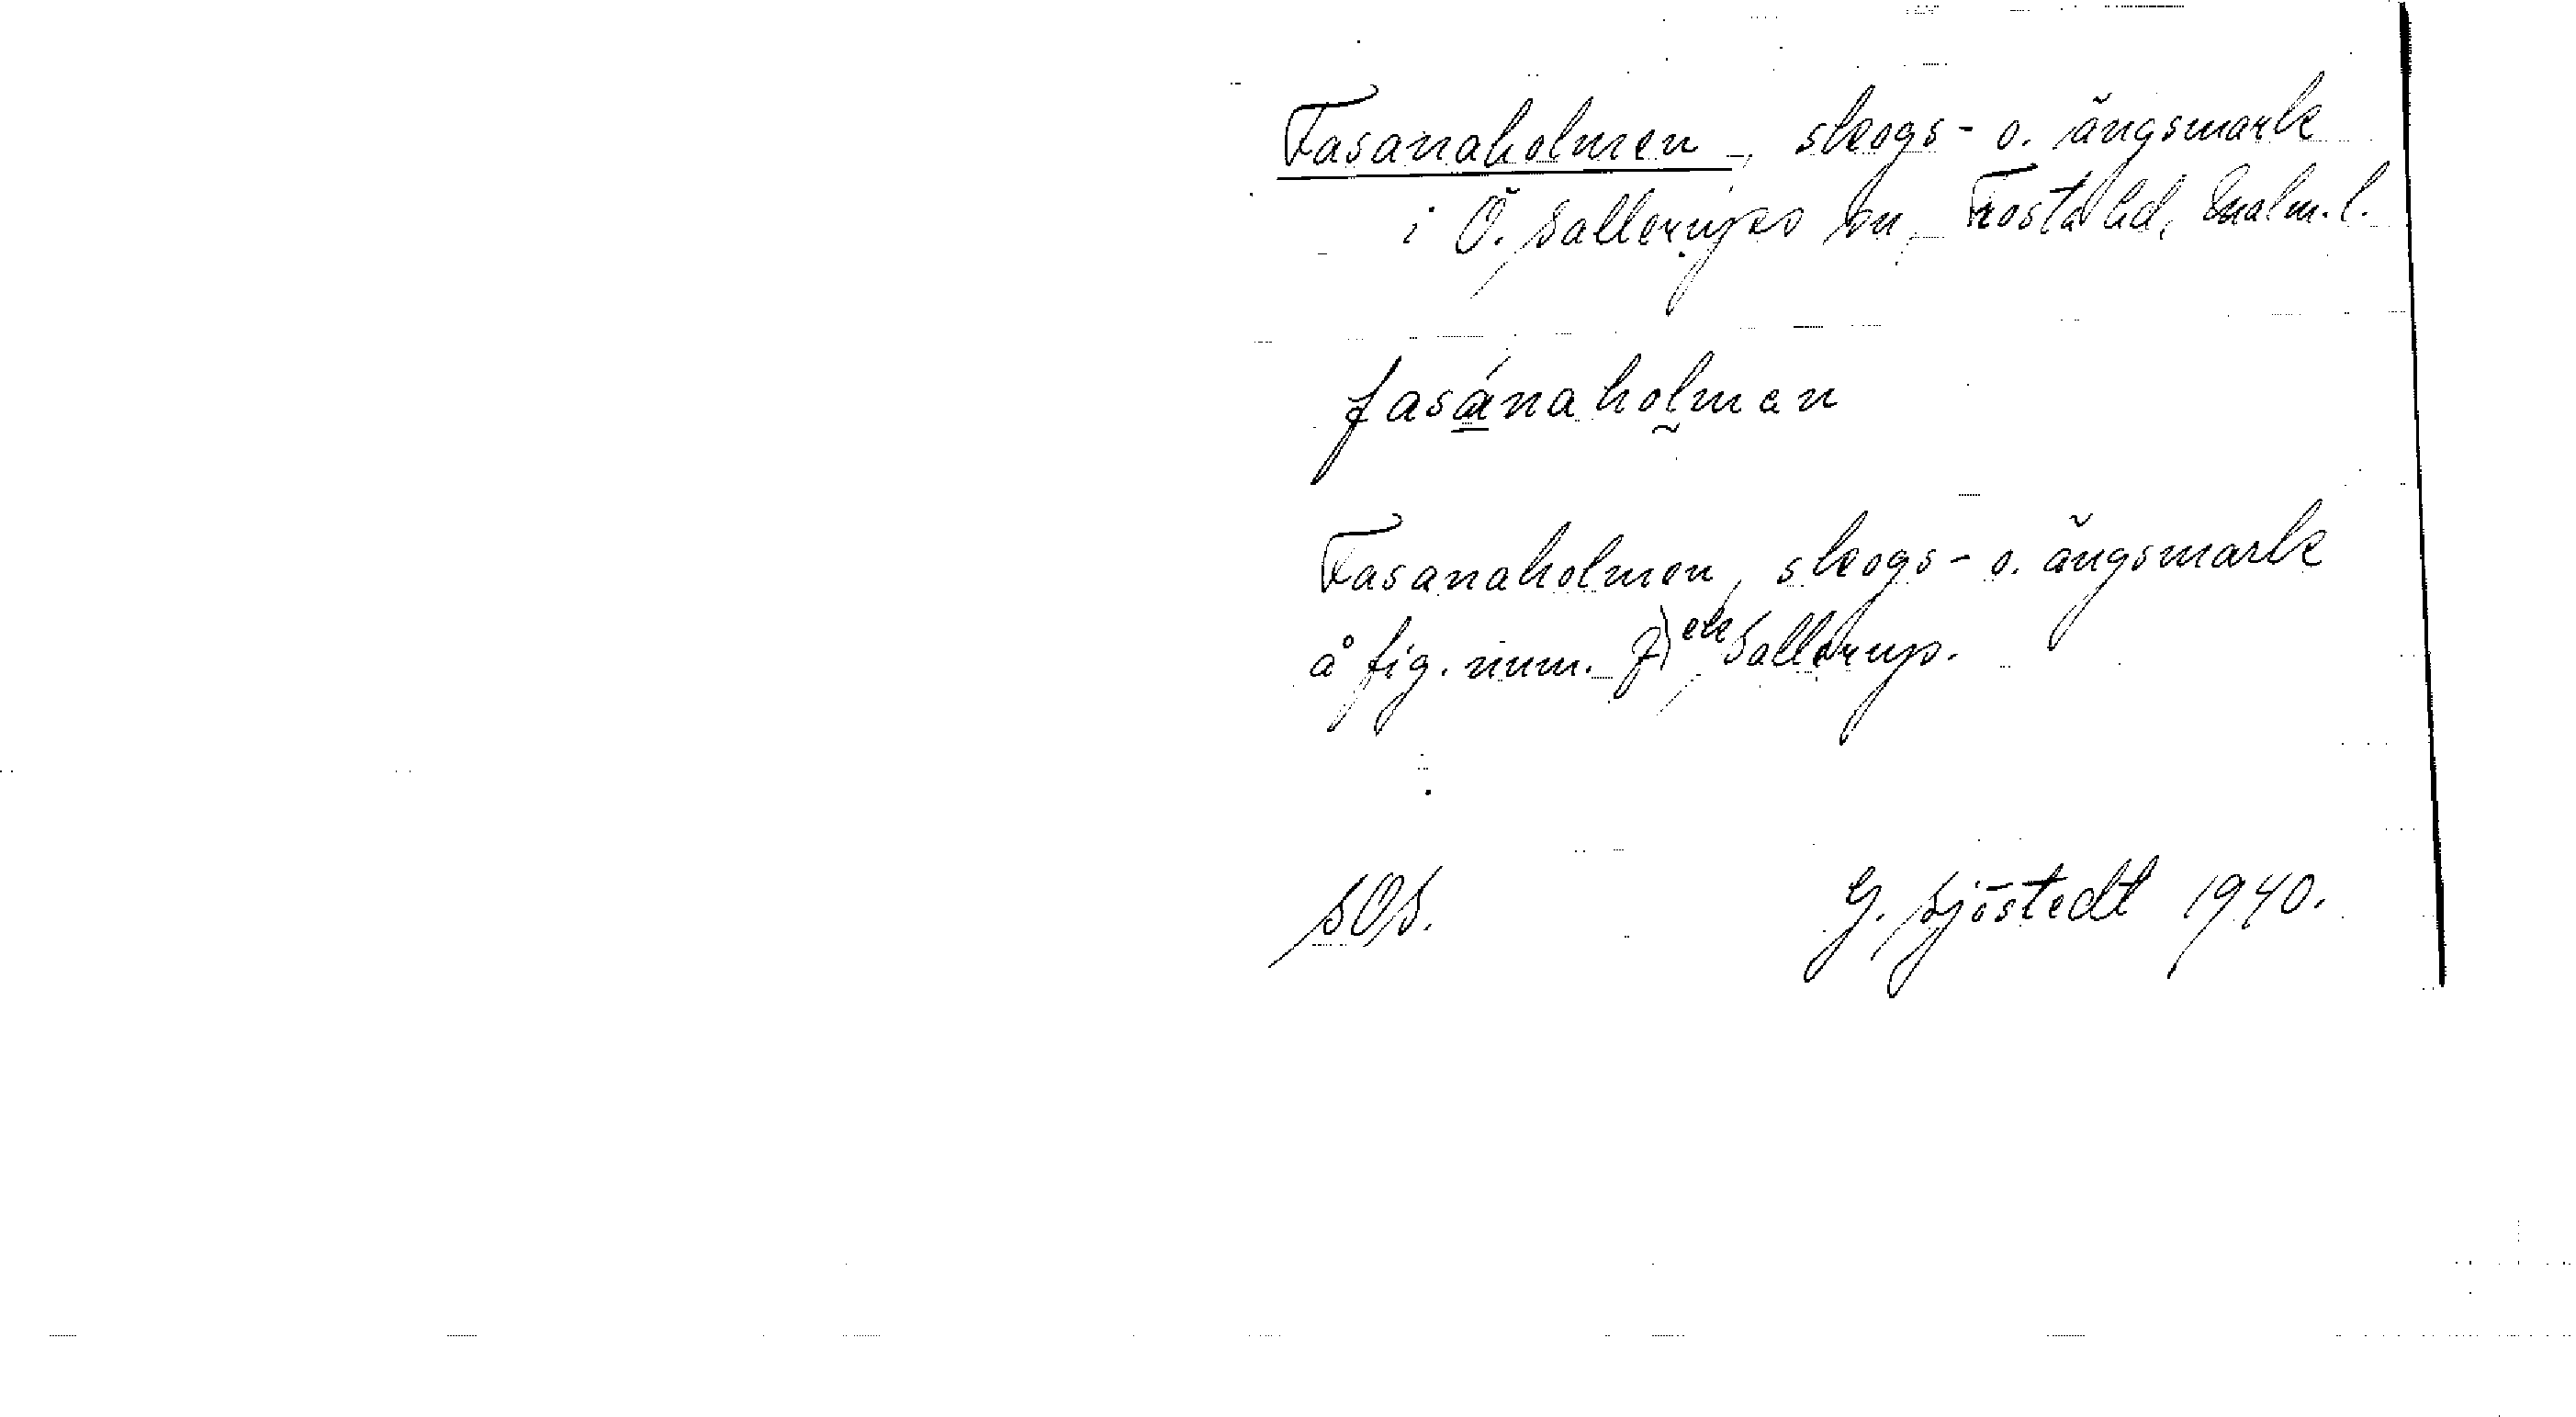 Fasanaholmen, skogs- o. ängsmark
i Ö. Sallerups sn, Frosta hd, Malm. l.
fasánaholmen
Fasanaholmen, skogs- o. ängsmark
å fig. num. Sallerup.
SOS.
G. Sjöstedt 1940.